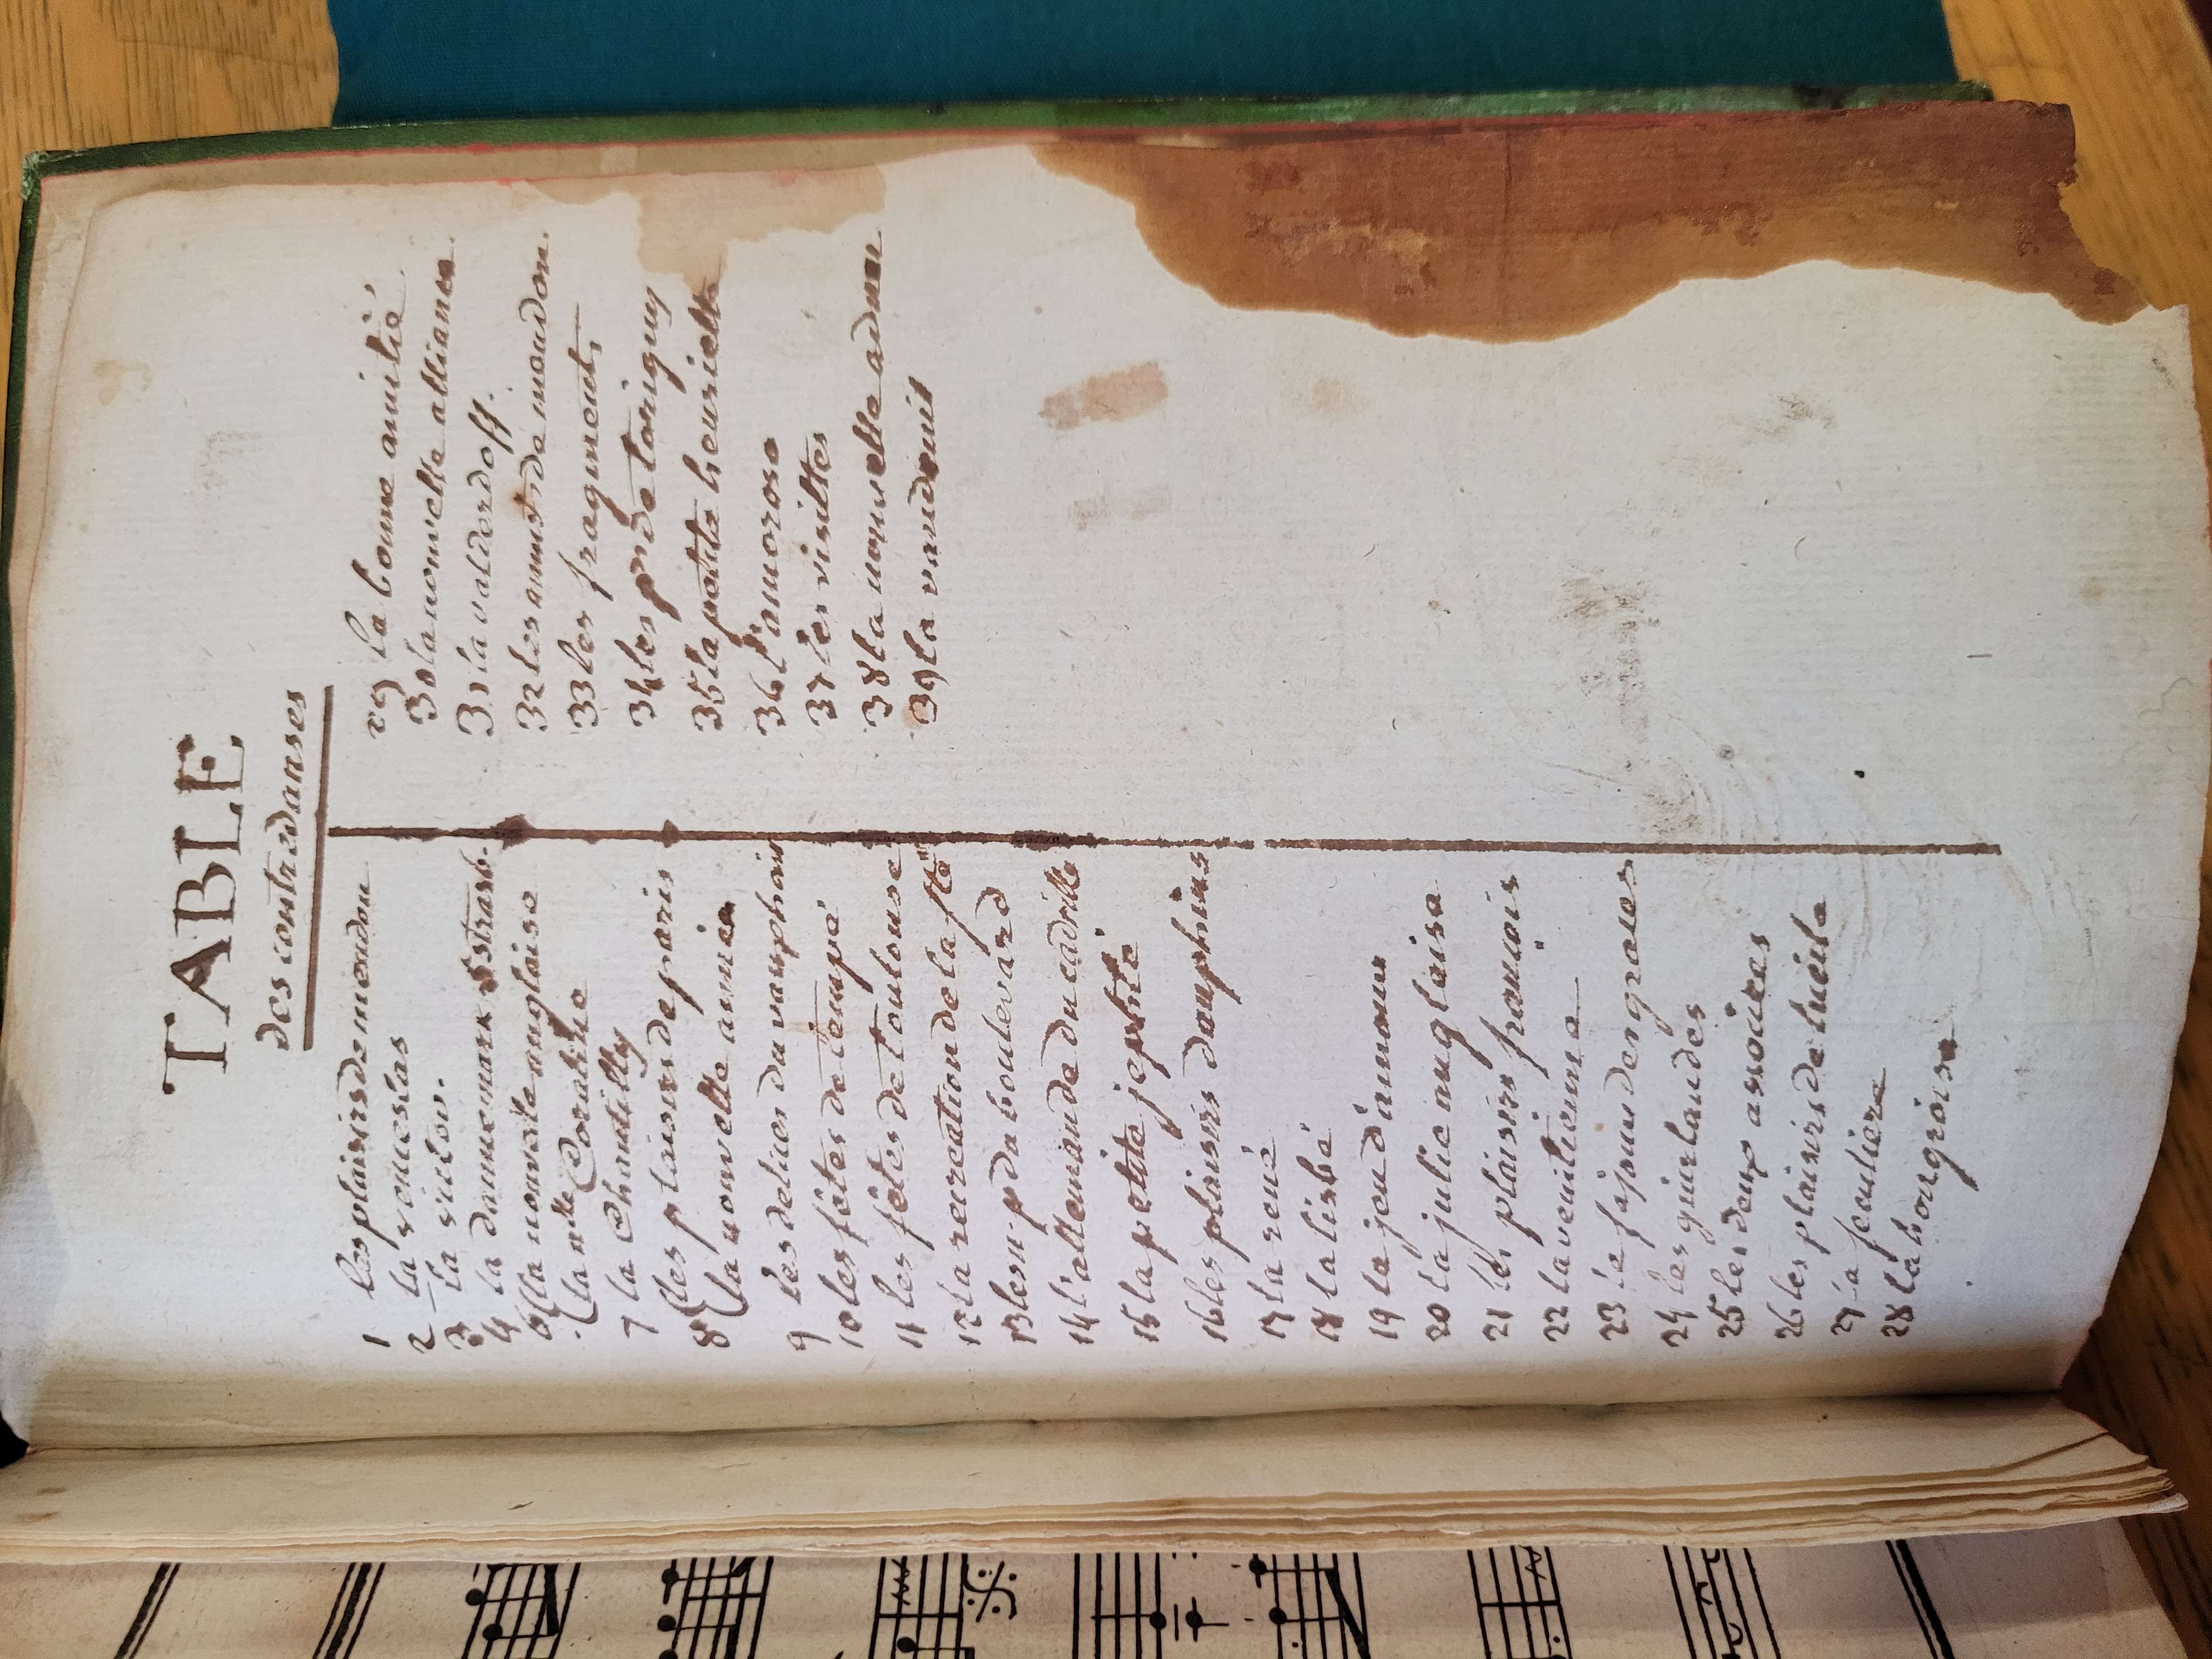 TABLE
des contredanses
1 les plaisirs de meudon
2 la vinceslas
3 la victoir.
4 la dannemark
6 la nouvele anglaise
la nlle Coraline
7 la Chantilly
les plaisirs de paris
8 la nouvelle annéa
9 les delices du vauxhair
10 les fêtes de tempé
11 les fêtes de toulouse
12 la recreation de la
13 le du boulevard
14 l'allemande du cadrille
15 la petite jephté
16 les plaisirs dauphins
17 la rené
18 la lisbé
19 le jeu d'amour
20 la julie anglaise
21 les plaisirs françois
22 la venitienne
23 le des graces
24 les guirlandes
25 les deux associees
26 les plaisirs de lucile
27 la feuliere
28 la hongroise
29 la bonne amitié
30 la nouvelle alliance
31 la valderdoff.
32 les de meudon.
33 les fragments
34 les pr de torigny
35 la petite heuriette
36 l'amoroso
37 les visittes
38 la nouvelle adme
39 la vaudreuil